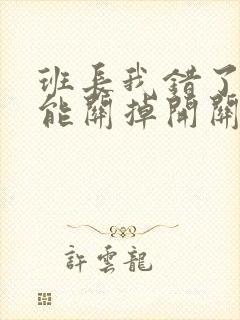 班长我错了
能關掉開關
許雲龍